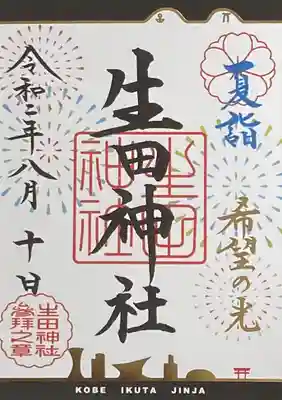 夏詣
希望の光
生田神社
生田神社
令和二年八月十日
生田神社
参拝之章
KOBE IKUTA JINJA